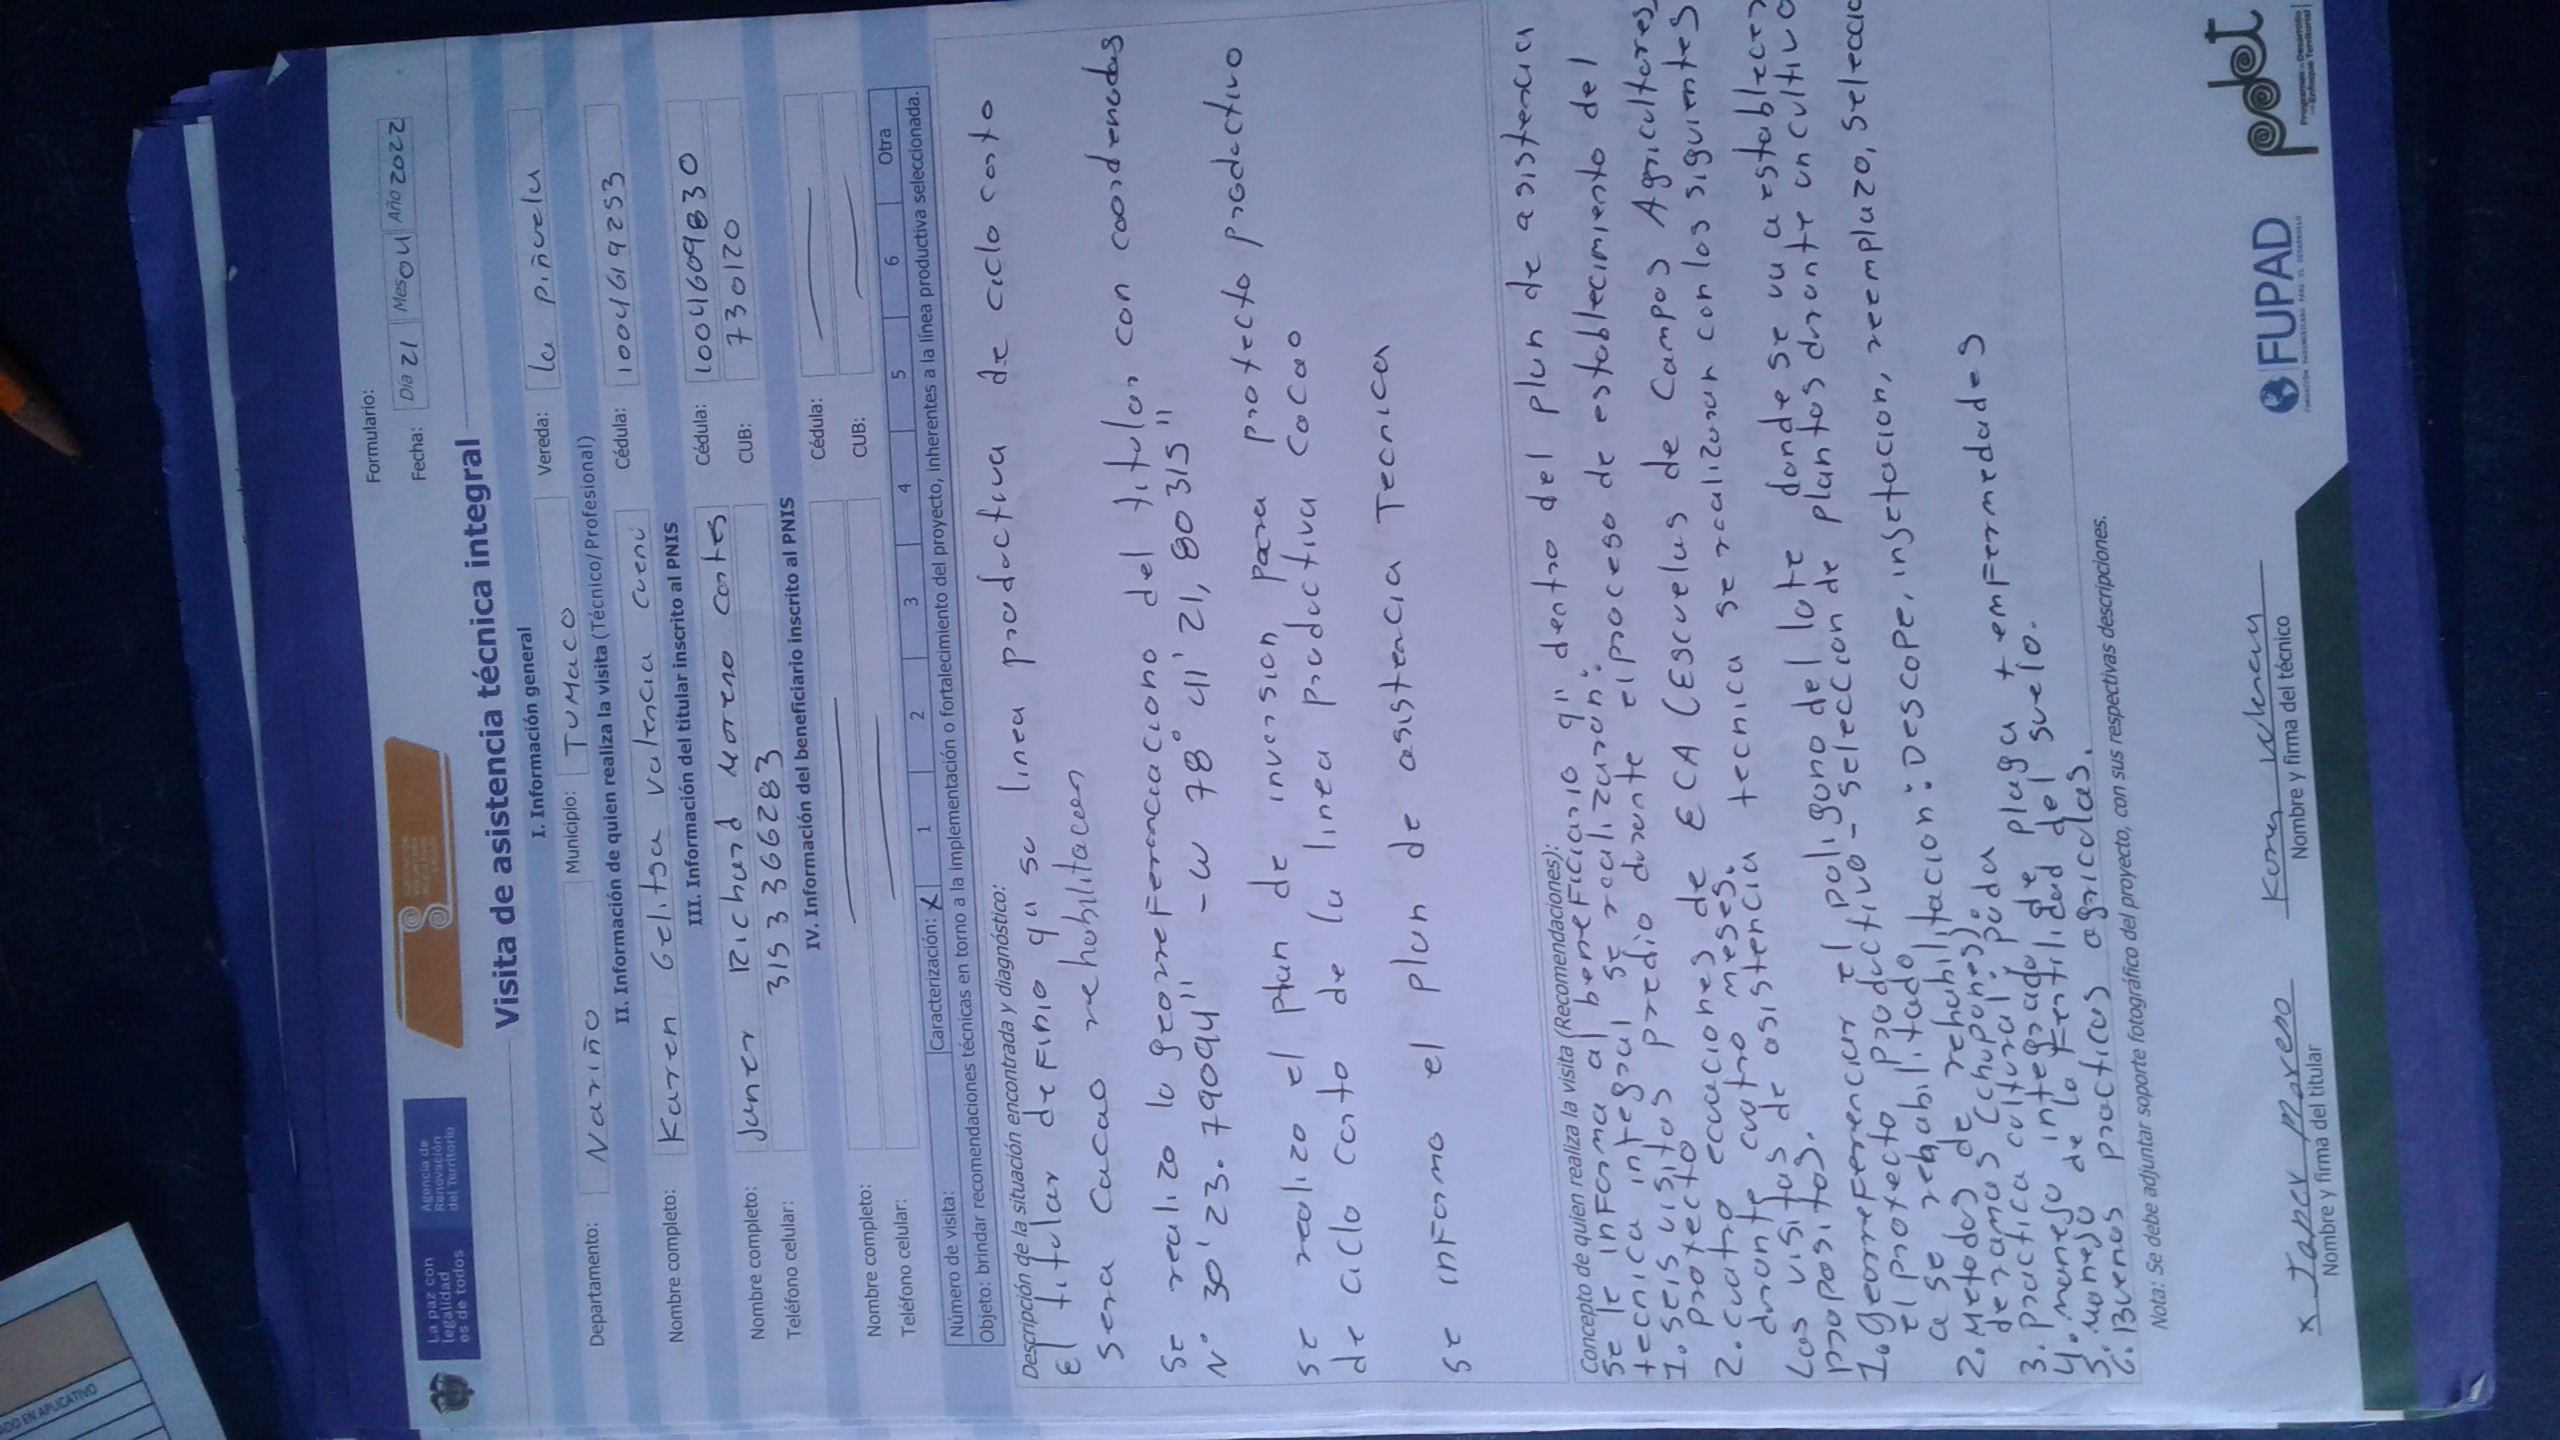 La paz con
legalidad
es de todos
Agencia de
Renovación
del Territorio
Formulario:
Fecha: Día 21 Mes 04 Año 2022
Visita de asistencia técnica integral
I. Información general
Departamento: Nariño Municipio: TUMACO Vereda: la piñuela
II. Información de quien realiza la visita (Técnico/Profesional)
Nombre completo: Karen Gelitsa valencia cuenu Cédula: 1004619253
III. Información del titular inscrito al PNIS
Nombre completo: Juner Richard Moreno cortes Cédula: 1004609830
Teléfono celular: 3153366283 CUB: 730120
IV. Información del beneficiario inscrito al PNIS
Nombre completo: Cédula:
Teléfono celular: CUB:
Número de visita: Caracterización: X 1 2 3 4 5 6 Otra
Objeto: brindar recomendaciones técnicas en torno a la implementación o fortalecimiento del proyecto, inherentes a la línea productiva seleccionada.
Descripción de la situación encontrada y diagnóstico:
El titular definio q' su linea productiva de ciclo corto
sera cacao rehabilitacion
se realizo la georreferenciaciono del titular con coordenadas
N° 30' 23.79094" - w 78° 41' 21,80315"
se realizo el plan de inversion para protecto productivo
de ciclo corto de la linea productiva cacao
se informo el plan de asistencia Tecnica
Concepto de quien realiza la visita (Recomendaciones):
se le informa al beneficiario q" dentro del plan de asistencia
tecnica integral se realizaran:
1. seis visitas predio durante el proceso de establecimiento del
protecto
2. cuatro ecuaciones de ECA (Escuelas de Campos Agricultores
durante cuatro meses.
Las visitas de asistencia tecnica se realizaran con los siguientes
propositos.
1. georreferenciar el poligono del lote donde se va a establecer
el protecto productivo - seleccion de plantas durante un cultivo
a se rehabilitado
2. Metodos de rehabilitacion: Descope, insetacion, reemplazo, seleccio
de ramas (chupones)
3. practica cultural: poda
4. manejo integrado de plaga t emfermedades
5. Manejo de la fertilidad del suelo.
6. Buenos practicas agricolas.
Nota: Se debe adjuntar soporte fotográfico del proyecto, con sus respectivas descripciones.
x Janer Moreno
Nombre y firma del titular
Karen Valencia
Nombre y firma del técnico
FUPAD
FUNDACIÓN PANAMERICANA PARA EL DESARROLLO
pdet
Programas de Desarrollo
con Enfoque Territorial
ADO EN APLICATIVO